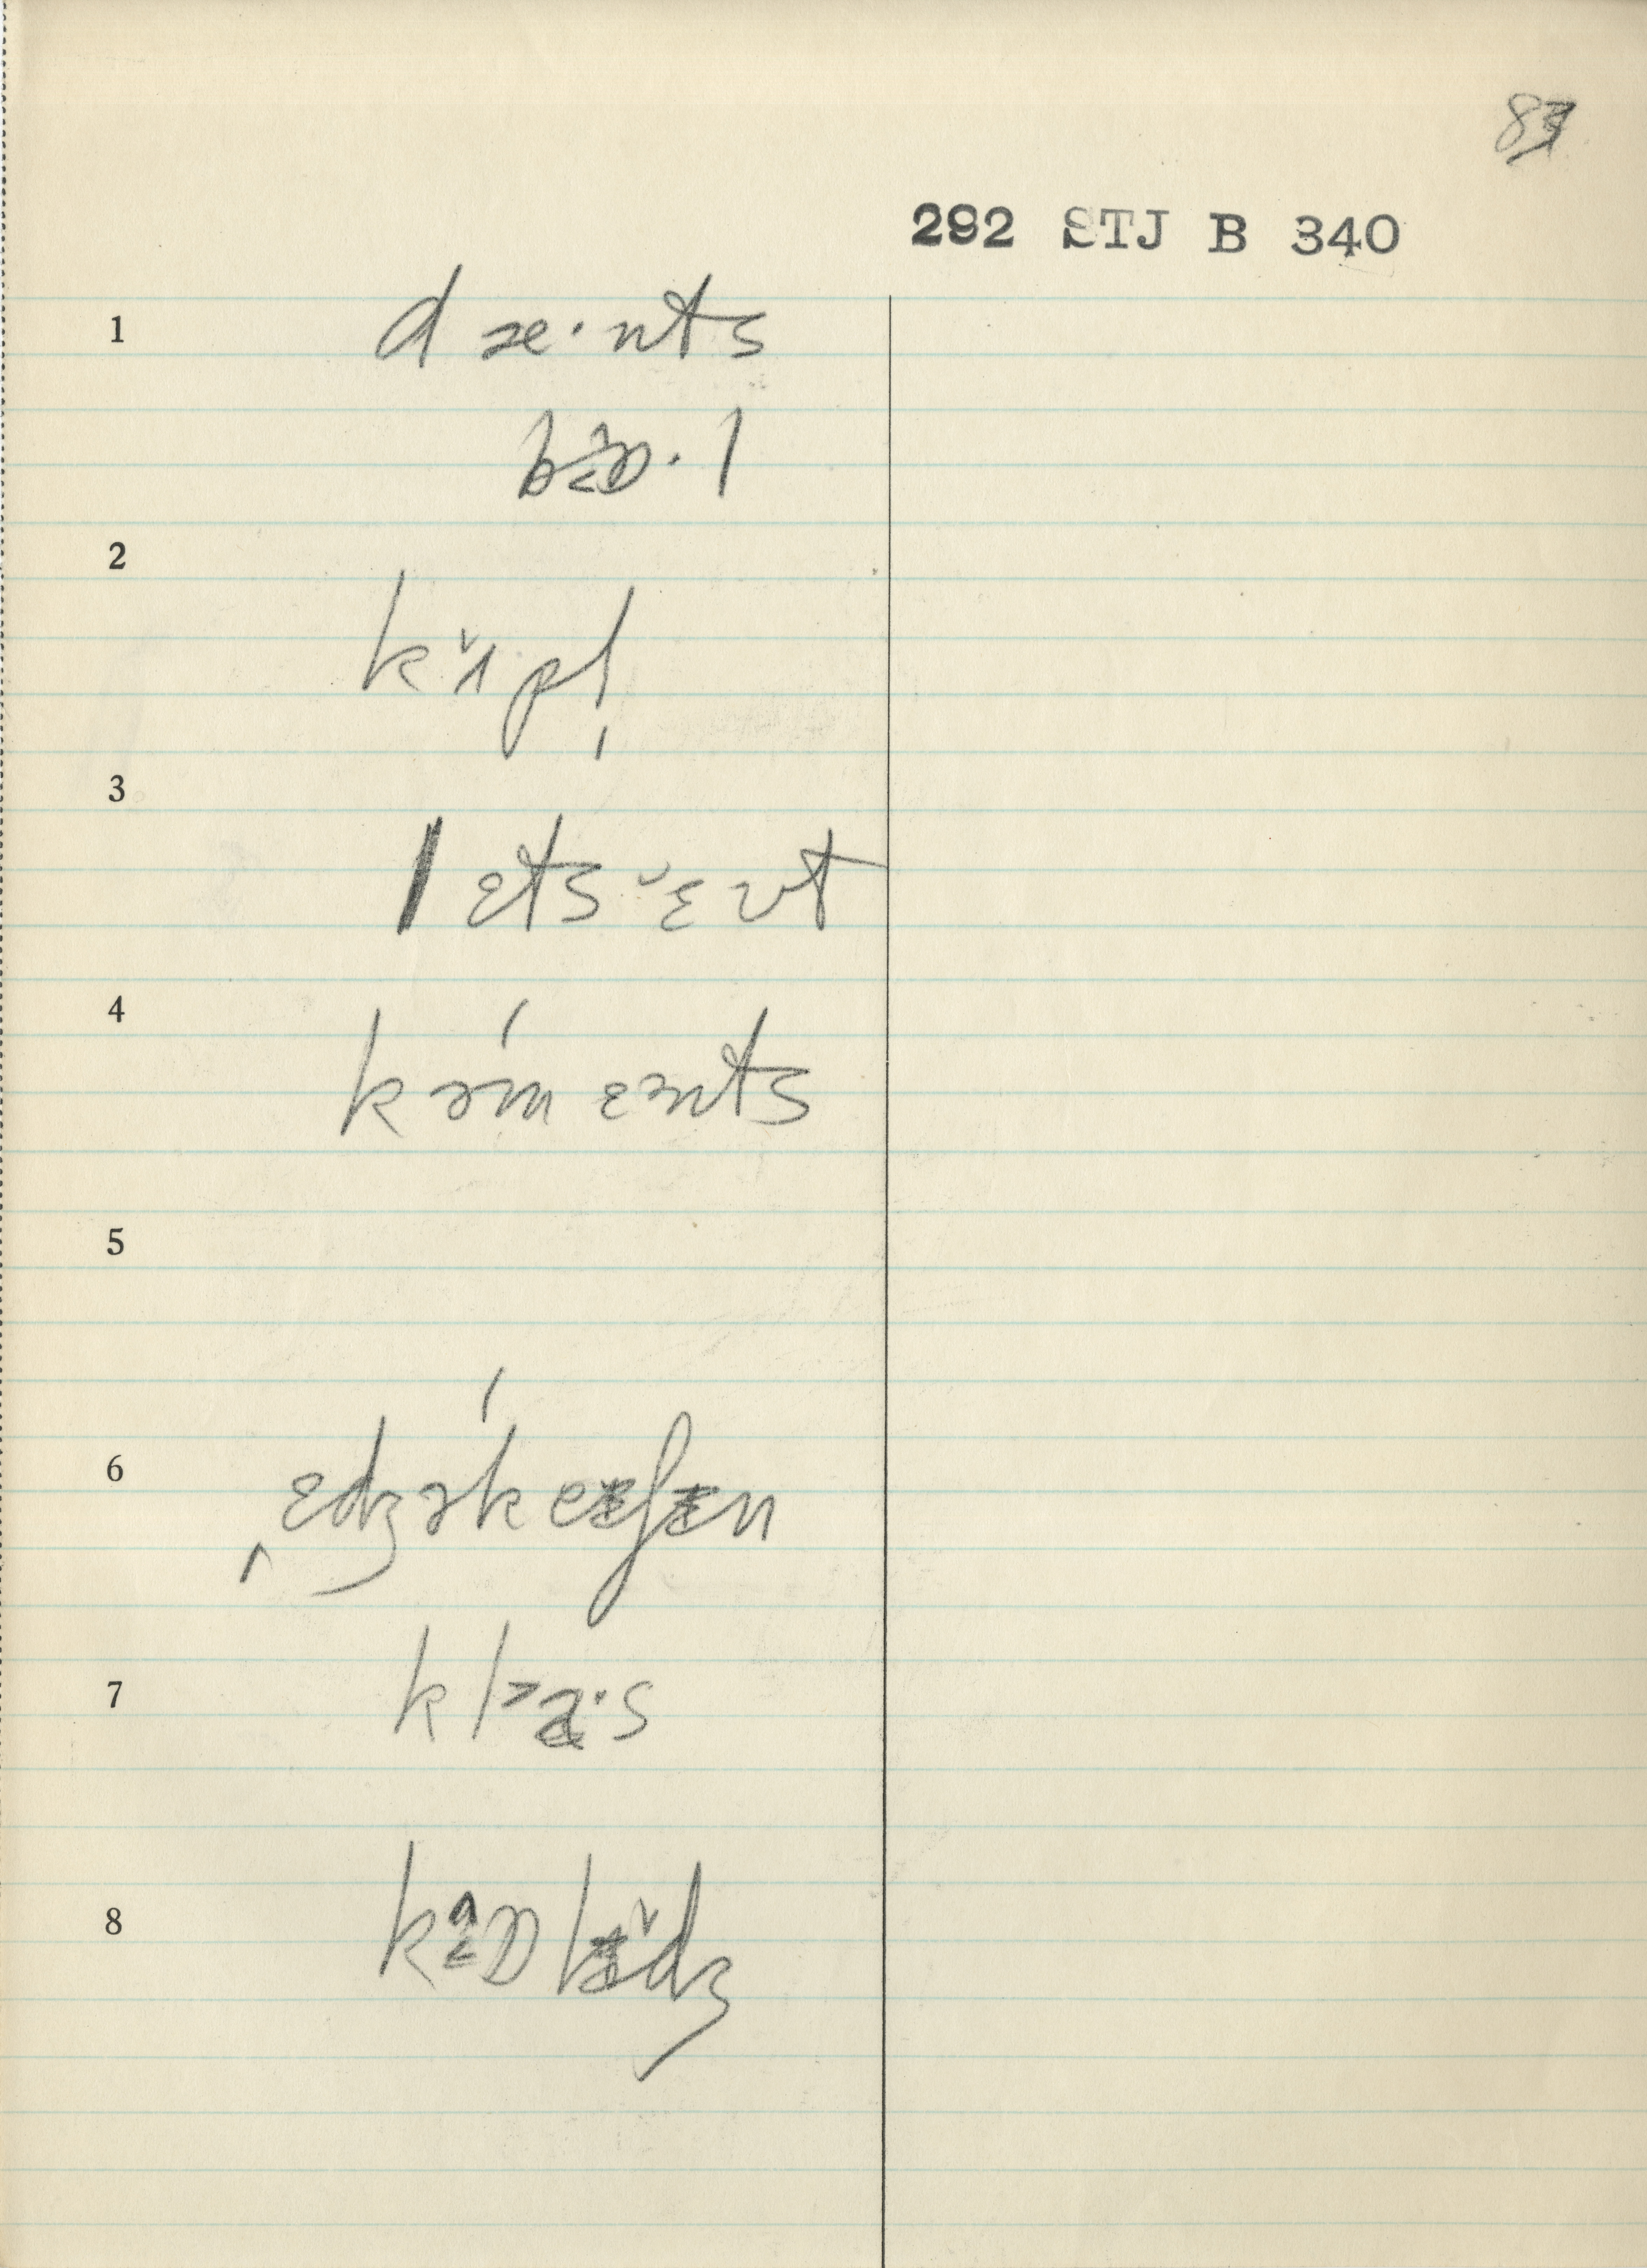 83
292 STJ B 340
1 dæ·nts
bɒ·l
2 kʌ̌pl̩
3 lets ɛ̆vt
4 kəmɛnts
5
6 ˌɛdʒəkeʃɪn
7 kla·s
8 kɒlɪ̆dʒ